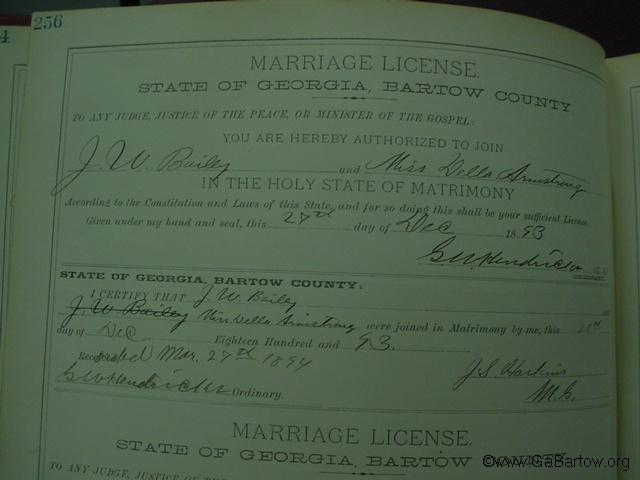 256
4
MARRIAGE LICENSE.
STATE OF GEORGIA, BARTOW COUNTY
TO ANY JUDGE, JUSTICE OF THE PEACE, OR MINISTER OF THE GOSPEL:
YOU ARE HEREBY AUTHORIZED TO JOIN
J. W. Bailey and Miss Della Armstrong
IN THE HOLY STATE OF MATRIMONY
According to the Constitution and Laws of this State, and for so doing this shall be your sufficient License.
Given under my hand and seal, this 27th day of Dec 1893
G W Hendricks
STATE OF GEORGIA, BARTOW COUNTY:
I CERTIFY THAT J W. Bailey
J. W. Bailey Miss Della Armstrong were joined in Matrimony by me, this
day of Dec Eighteen Hundred and 93.
Recorded Mar. 27th 1894
J. S. Harkins
G W Hendricks Ordinary.
M. G.
MARRIAGE LICENSE.
STATE OF GEORGIA, BARTOW COUNTY
TO ANY JUDGE, JUSTICE OF
©www.GaBartow.org